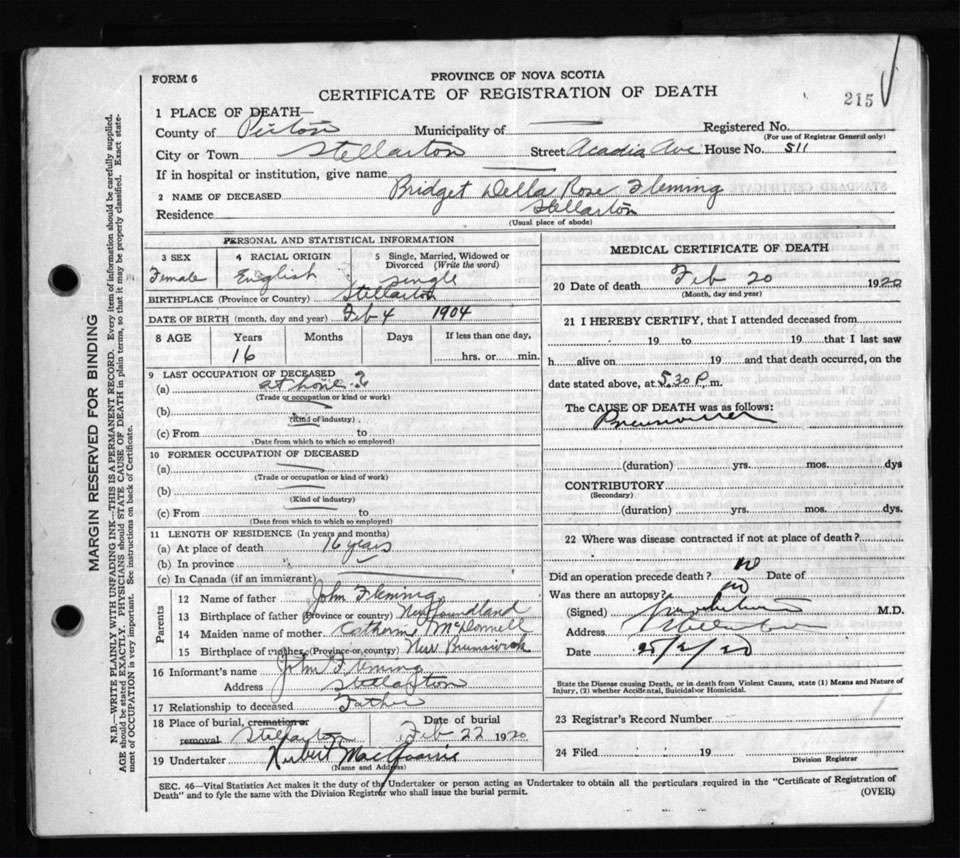 FORM 6
PROVINCE OF NOVA SCOTIA
CERTIFICATE OF REGISTRATION OF DEATH
215
1 PLACE OF DEATH—
County of Pictou Municipality of — Registered No.
(For use of Registrar General only)
City or Town Stellarton Street Acadia Ave House No. 511
If in hospital or institution, give name —
2 NAME OF DECEASED Bridget Della Rose Fleming
Residence Stellarton
(Usual place of abode)
MARGIN RESERVED FOR BINDING
N.B.—WRITE PLAINLY WITH UNFADING INK—THIS IS A PERMANENT RECORD. Every item of information should be carefully supplied.
AGE should be stated EXACTLY. PHYSICIANS should STATE CAUSE OF DEATH in plain terms, so that it may be properly classified. Exact state-
ment of OCCUPATION is very important. See instructions on back of Certificate.
PERSONAL AND STATISTICAL INFORMATION
3 SEX 4 RACIAL ORIGIN 5 Single, Married, Widowed or
Divorced (Write the word)
Female English Single
BIRTHPLACE (Province or Country) Stellarton
DATE OF BIRTH (month, day and year) Feb 4 1904
8 AGE Years Months Days If less than one day,
16 hrs. or min.
9 LAST OCCUPATION OF DECEASED
(a) at home ?
(Trade or occupation or kind of work)
(b) —
(Kind of industry)
(c) From to
(Date from which to which so employed)
10 FORMER OCCUPATION OF DECEASED
(a) —
(Trade or occupation or kind of work)
(b) —
(Kind of industry)
(c) From to
(Date from which to which so employed)
11 LENGTH OF RESIDENCE (In years and months)
(a) At place of death 16 years
(b) In province "
(c) In Canada (if an immigrant) —
Parents
12 Name of father John Fleming
13 Birthplace of father (Province or country) Newfoundland
14 Maiden name of mother Catherine McDonnell
15 Birthplace of mother (Province or country) New Brunswick
16 Informant's name John Fleming
Address Stellarton
17 Relationship to deceased Father
18 Place of burial, cremation or Date of burial
removal Stellarton Feb 22 1920
19 Undertaker
(Name and Address)
MEDICAL CERTIFICATE OF DEATH
20 Date of death Feb 20 1920
(Month, day and year)
21 I HEREBY CERTIFY, that I attended deceased from
19 to 19 that I last saw
h alive on 19 and that death occurred, on the
date stated above, at 5.30 P. m.
The CAUSE OF DEATH was as follows:
Pneumonia
(duration) yrs. mos. dys
CONTRIBUTORY
(Secondary)
(duration) yrs. mos. dys.
22 Where was disease contracted if not at place of death?
Did an operation precede death? no Date of
Was there an autopsy? no
(Signed) M.D.
Address Stellarton
Date 25/2/20
State the Disease causing Death, or in death from Violent Causes, state (1) Means and Nature of
Injury, (2) whether Accidental, Suicidal or Homicidal.
23 Registrar's Record Number
24 Filed 19
Division Registrar
SEC. 46—Vital Statistics Act makes it the duty of the Undertaker or person acting as Undertaker to obtain all the particulars required in the "Certificate of Registration of
Death" and to fyle the same with the Division Registrar who shall issue the burial permit.
(OVER)